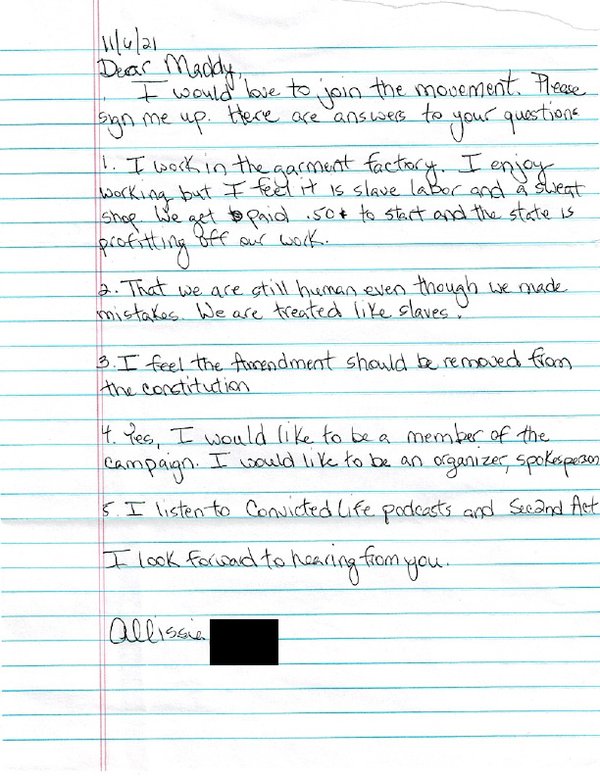 11/6/21
Dear Maddy,
I would love to join the movement. Please
sign me up. Here are answers to your questions
1. I work in the garment factory. I enjoy
working but I feel it is slave labor and a sweat
shop. We get paid .50¢ to start and the state is
profitting off our work.
2. That we are still human even though we made
mistakes. We are treated like slaves.
3. I feel the Amendment should be removed from
the constitution
4. Yes, I would like to be a member of the
campaign. I would like to be an organizer, spokesperson
5. I listen to Convicted Life podcasts and Sec2nd Act
I look forward to hearing from you.
Allissie